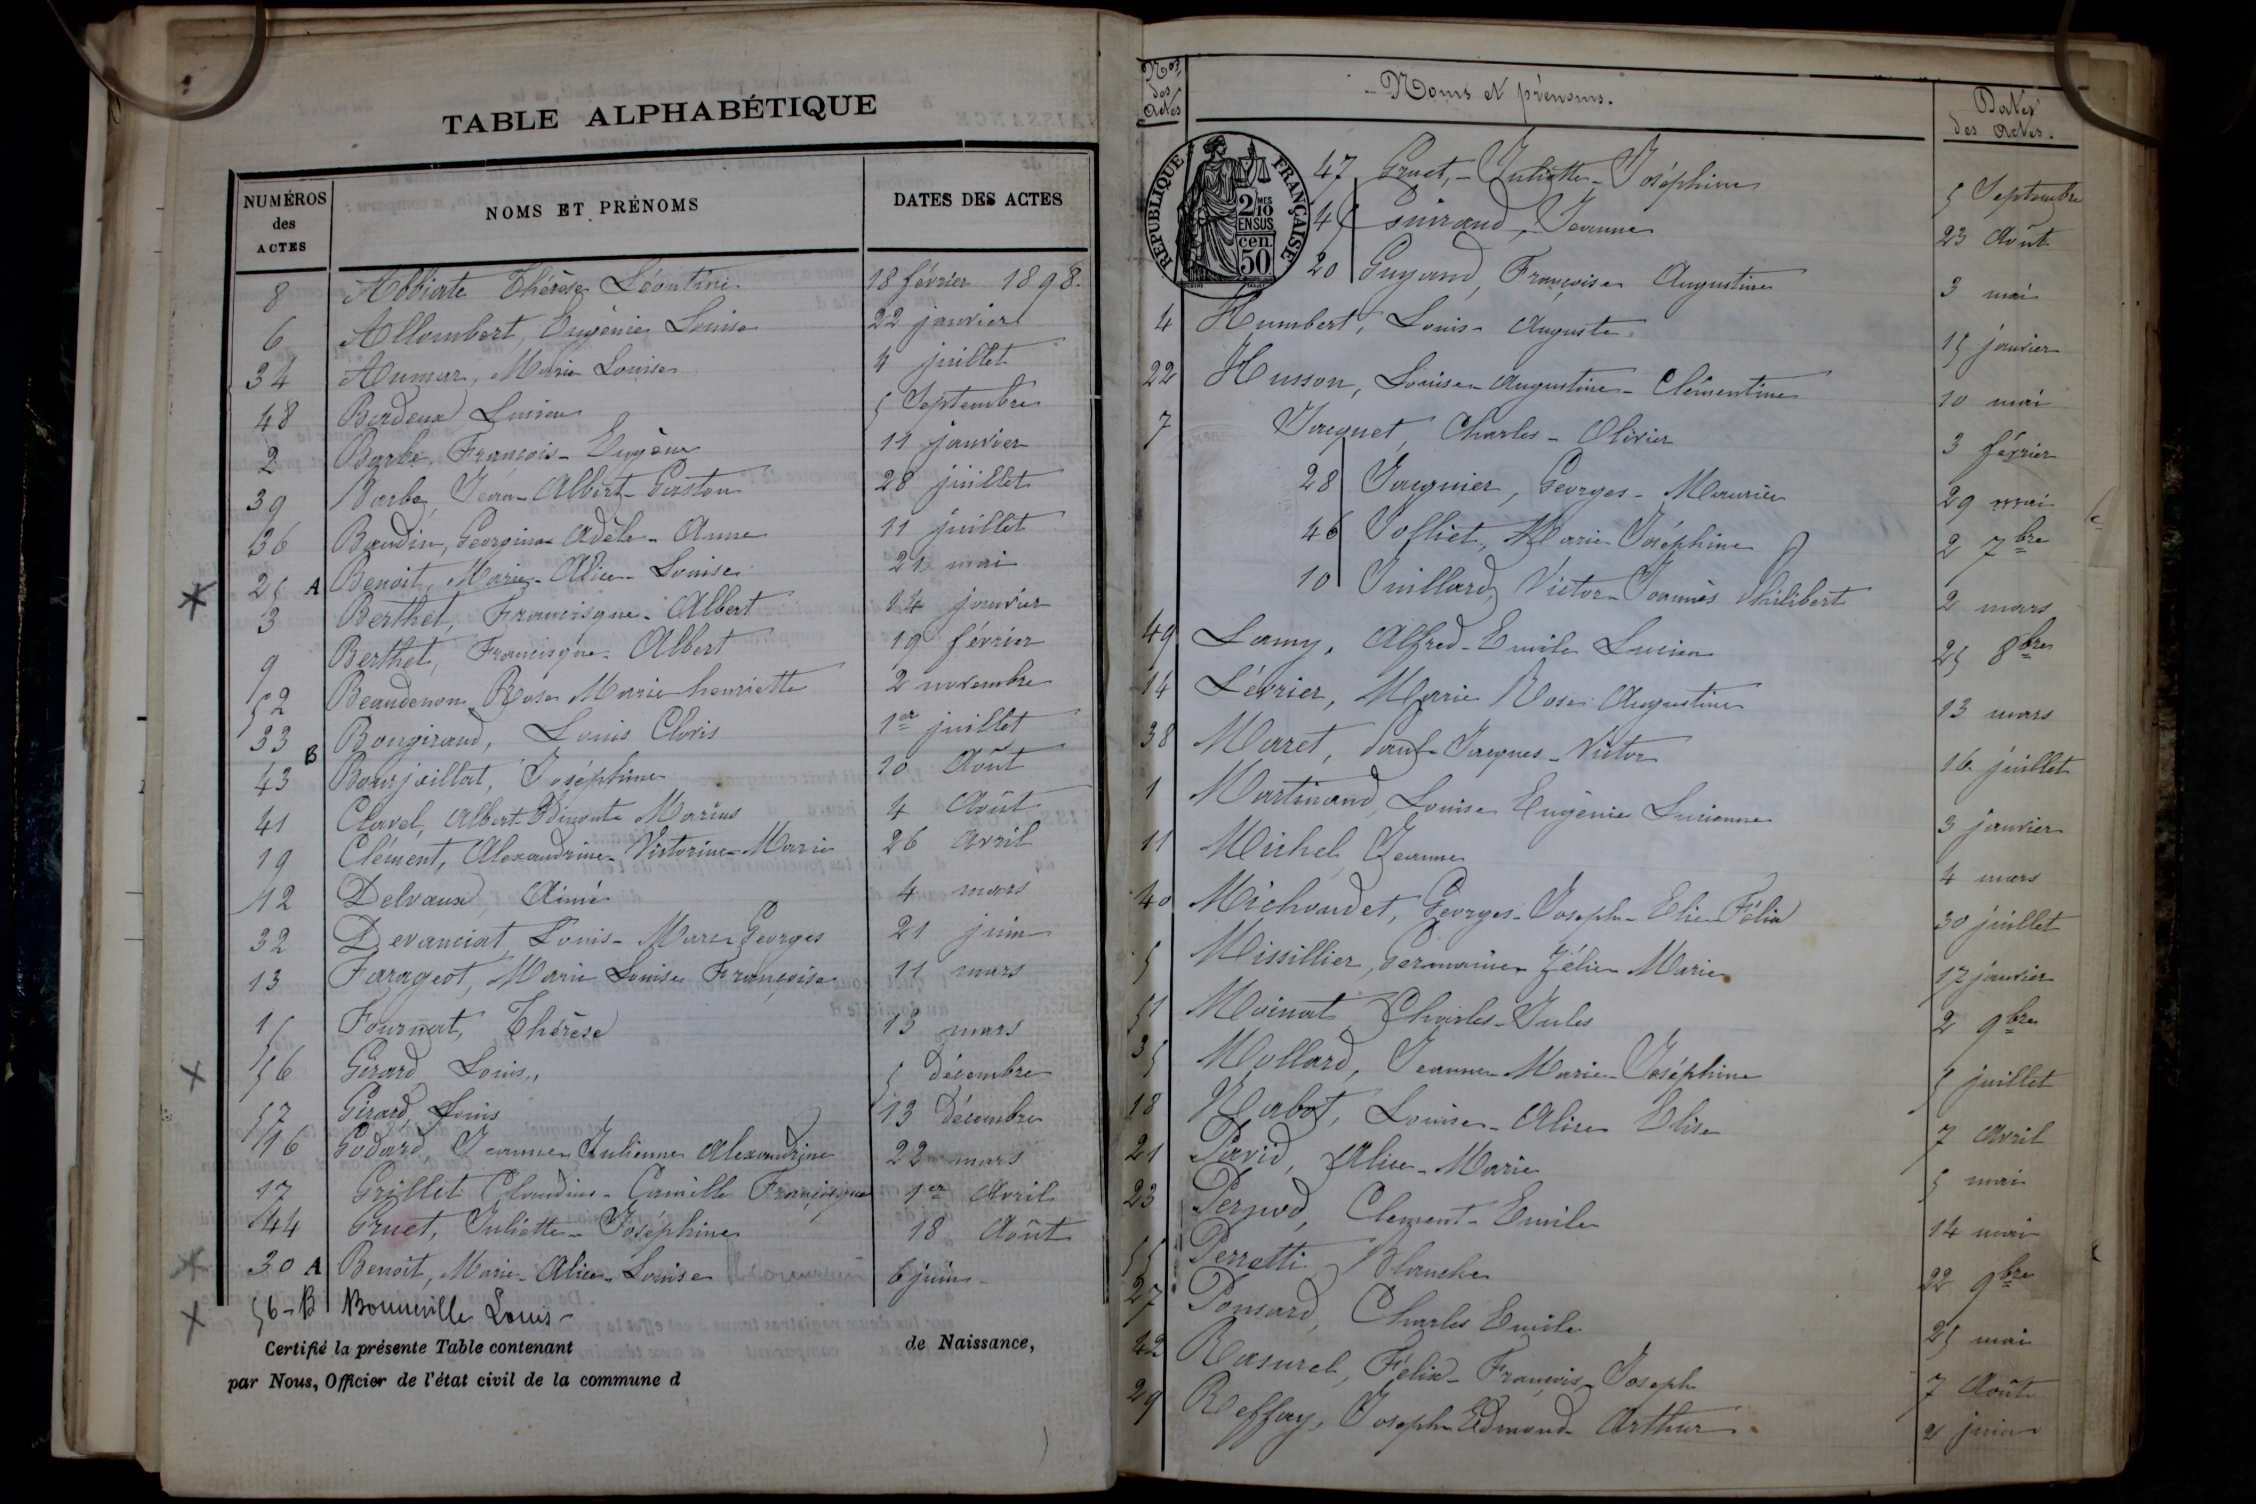 TABLE ALPHABÉTIQUE
NUMÉROS des ACTES NOMS ET PRÉNOMS DATES DES ACTES
8 Abbiate Thérèse Léontine 18 février 1898
6 Allombert, Eugénie Louise 22 janvier
34 Aumar, Marie Louise 4 juillet
48 Bardeux Lucien 5 Septembre
2 Barbe, François-Eugène 11 janvier
39 Barbe, Jean-Albert-Gaston 28 juillet
36 Baudin, Georgina Adèle-Anne 11 juillet
25 A Benoit, Marie-Alice-Louise 21 mai
3 Berthet, Francisque-Albert 14 janvier
9 Berthet, Francisque-Albert 19 février
52 Beaudenon Rose Marie henriette 2 novembre
33 Bongiraud, Louis Clovis 1er juillet
43 B Bourjaillat, Joséphine 10 Août
41 Clavel, Albert Marius 4 Août
19 Clément, Alexandrine-Victorine-Marie 26 Avril
12 Delvaux, Aimé 4 mars
32 Devanciat Louis-Marc Georges 21 juin
13 Farageot, Marie Louise Françoise 11 mars
15 Fournat, Thérèse 13 mars
56 Girard Louis 5 Décembre
57 Girard, Louis 13 Décembre
16 Godard, Jeanne Julienne Alexandrine 22 mars
17 Grillet Claudius-Camille Francisque 1er Avril
44 Gruet, Juliette-Joséphine 18 Août
30 A Benoit, Marie-Alice-Louise 6 juin
56-B Bonneville Louis
Certifié la présente Table contenant de Naissance,
par Nous, Officier de l'état civil de la commune d
Nos des Actes Noms et prénoms. Dates des Actes.
RÉPUBLIQUE FRANÇAISE
2/10 MES EN SUS
50 cen.
47 Gruet,-Juliette-Joséphine 5 Septembre
45 Guiraud, Jeanne 23 Août
20 Guyand, Françoise Augustine 3 mai
4 Humbert, Louis-Auguste 15 janvier
22 Husson, Louise-Augustine-Clémentine 10 mai
7 Jacquet, Charles-Olivier 3 février
28 Jacquier, Georges-Maurice 29 mai
46 Jolliet, Marie Joséphine 2 7bre
10 Juillard, Victor-Joannès Philibert 2 mars
49 Lamy, Alfred-Emile Lucien 25 8bre
14 Lévrier, Marie Rose Augustine 13 mars
38 Maret, Paul-Jacques-Victor 16 juillet
1 Martinand, Louise Eugénie Lucienne 3 janvier
11 Michel Jeanne 4 mars
40 Michaudet, Georges-Joseph-Elie-Félix 30 juillet
5 Missillier, Germaine Zélie Marie 17 janvier
51 Moinat Charles-Jules 2 9bre
35 Mollard, Jeanne-Marie-Joséphine 5 juillet
18 Nabot, Louise-Alice Elise 7 Avril
21 Pavid, Alice-Marie 5 mai
23 Pernod, Clement-Emile 14 mai
55 Perratti Blanche 22 9bre
27 Ponsard, Charles Emile 25 mai
42 Rasurel, Félix-François-Joseph 7 Août
29 Reffay, Joseph-Edmond-Arthur 2 juin